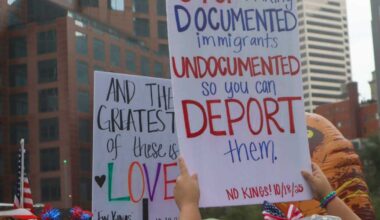 DOCUMENTED
immigrants
UNDOCUMENTED
so you can
DEPORT
them.
NO KINGS! 10/18/25
AND THE
GREATEST
of these is
LOVE